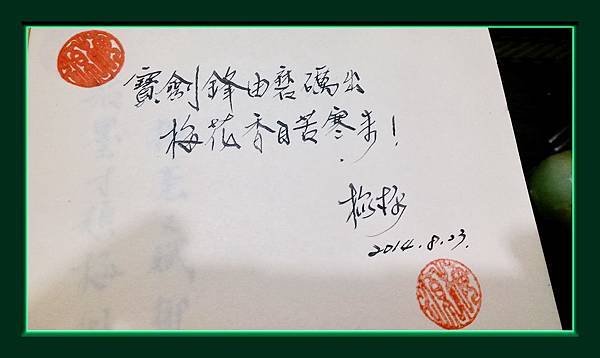 寶劍鋒由磨礪出
梅花香自苦寒來！
2014.8.23.